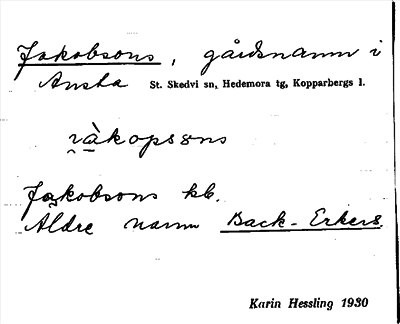 Jakobsons, gårdsnamn i
Ansta St. Skedvi sn, Hedemora tg, Kopparbergs l.
i̯àkopsɷns
Jakobsons kb.
Äldre namn Back-Erkers.
Karin Hessling 1930